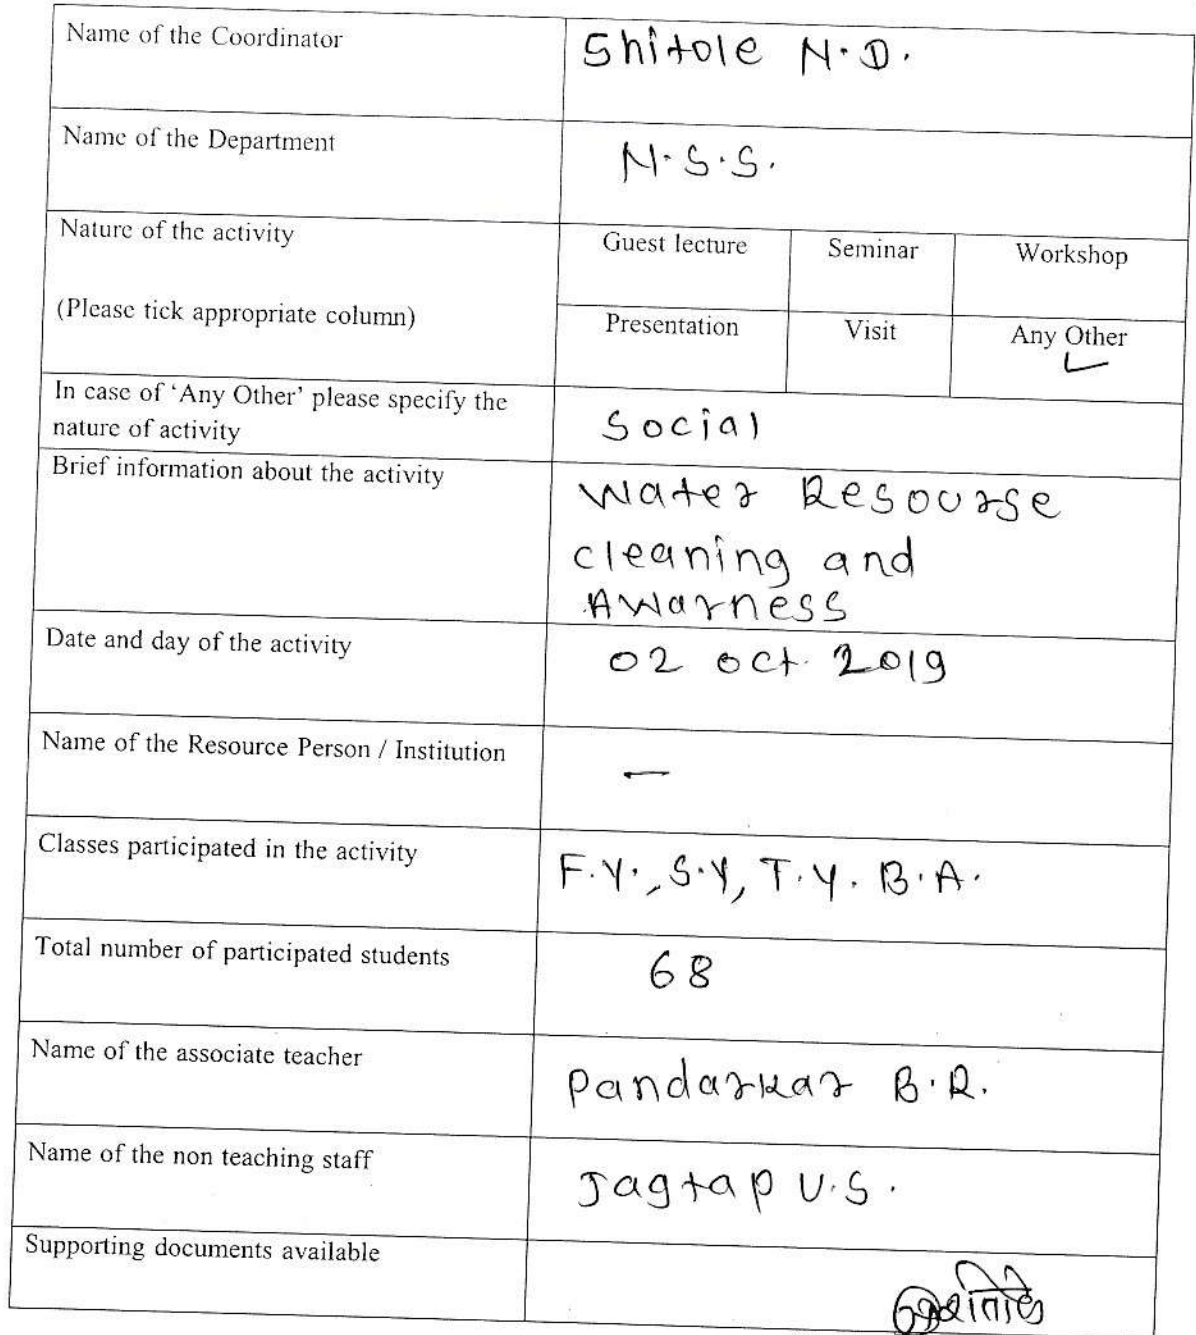 Name of the Coordinator
Shitole N.D.
Name of the Department
N.S.S.
Nature of the activity
(Please tick appropriate column)
Guest lecture Seminar Workshop
Presentation Visit Any Other
In case of ‘Any Other’ please specify the
nature of activity
Social
Brief information about the activity
Water Resourse
cleaning and
Awarness
Date and day of the activity
02 oct. 2019
Name of the Resource Person / Institution
—
Classes participated in the activity
F.Y., S.Y, T.Y. B.A.
Total number of participated students
68
Name of the associate teacher
Pandarkar B.R.
Name of the non teaching staff
Jagtap U.S.
Supporting documents available